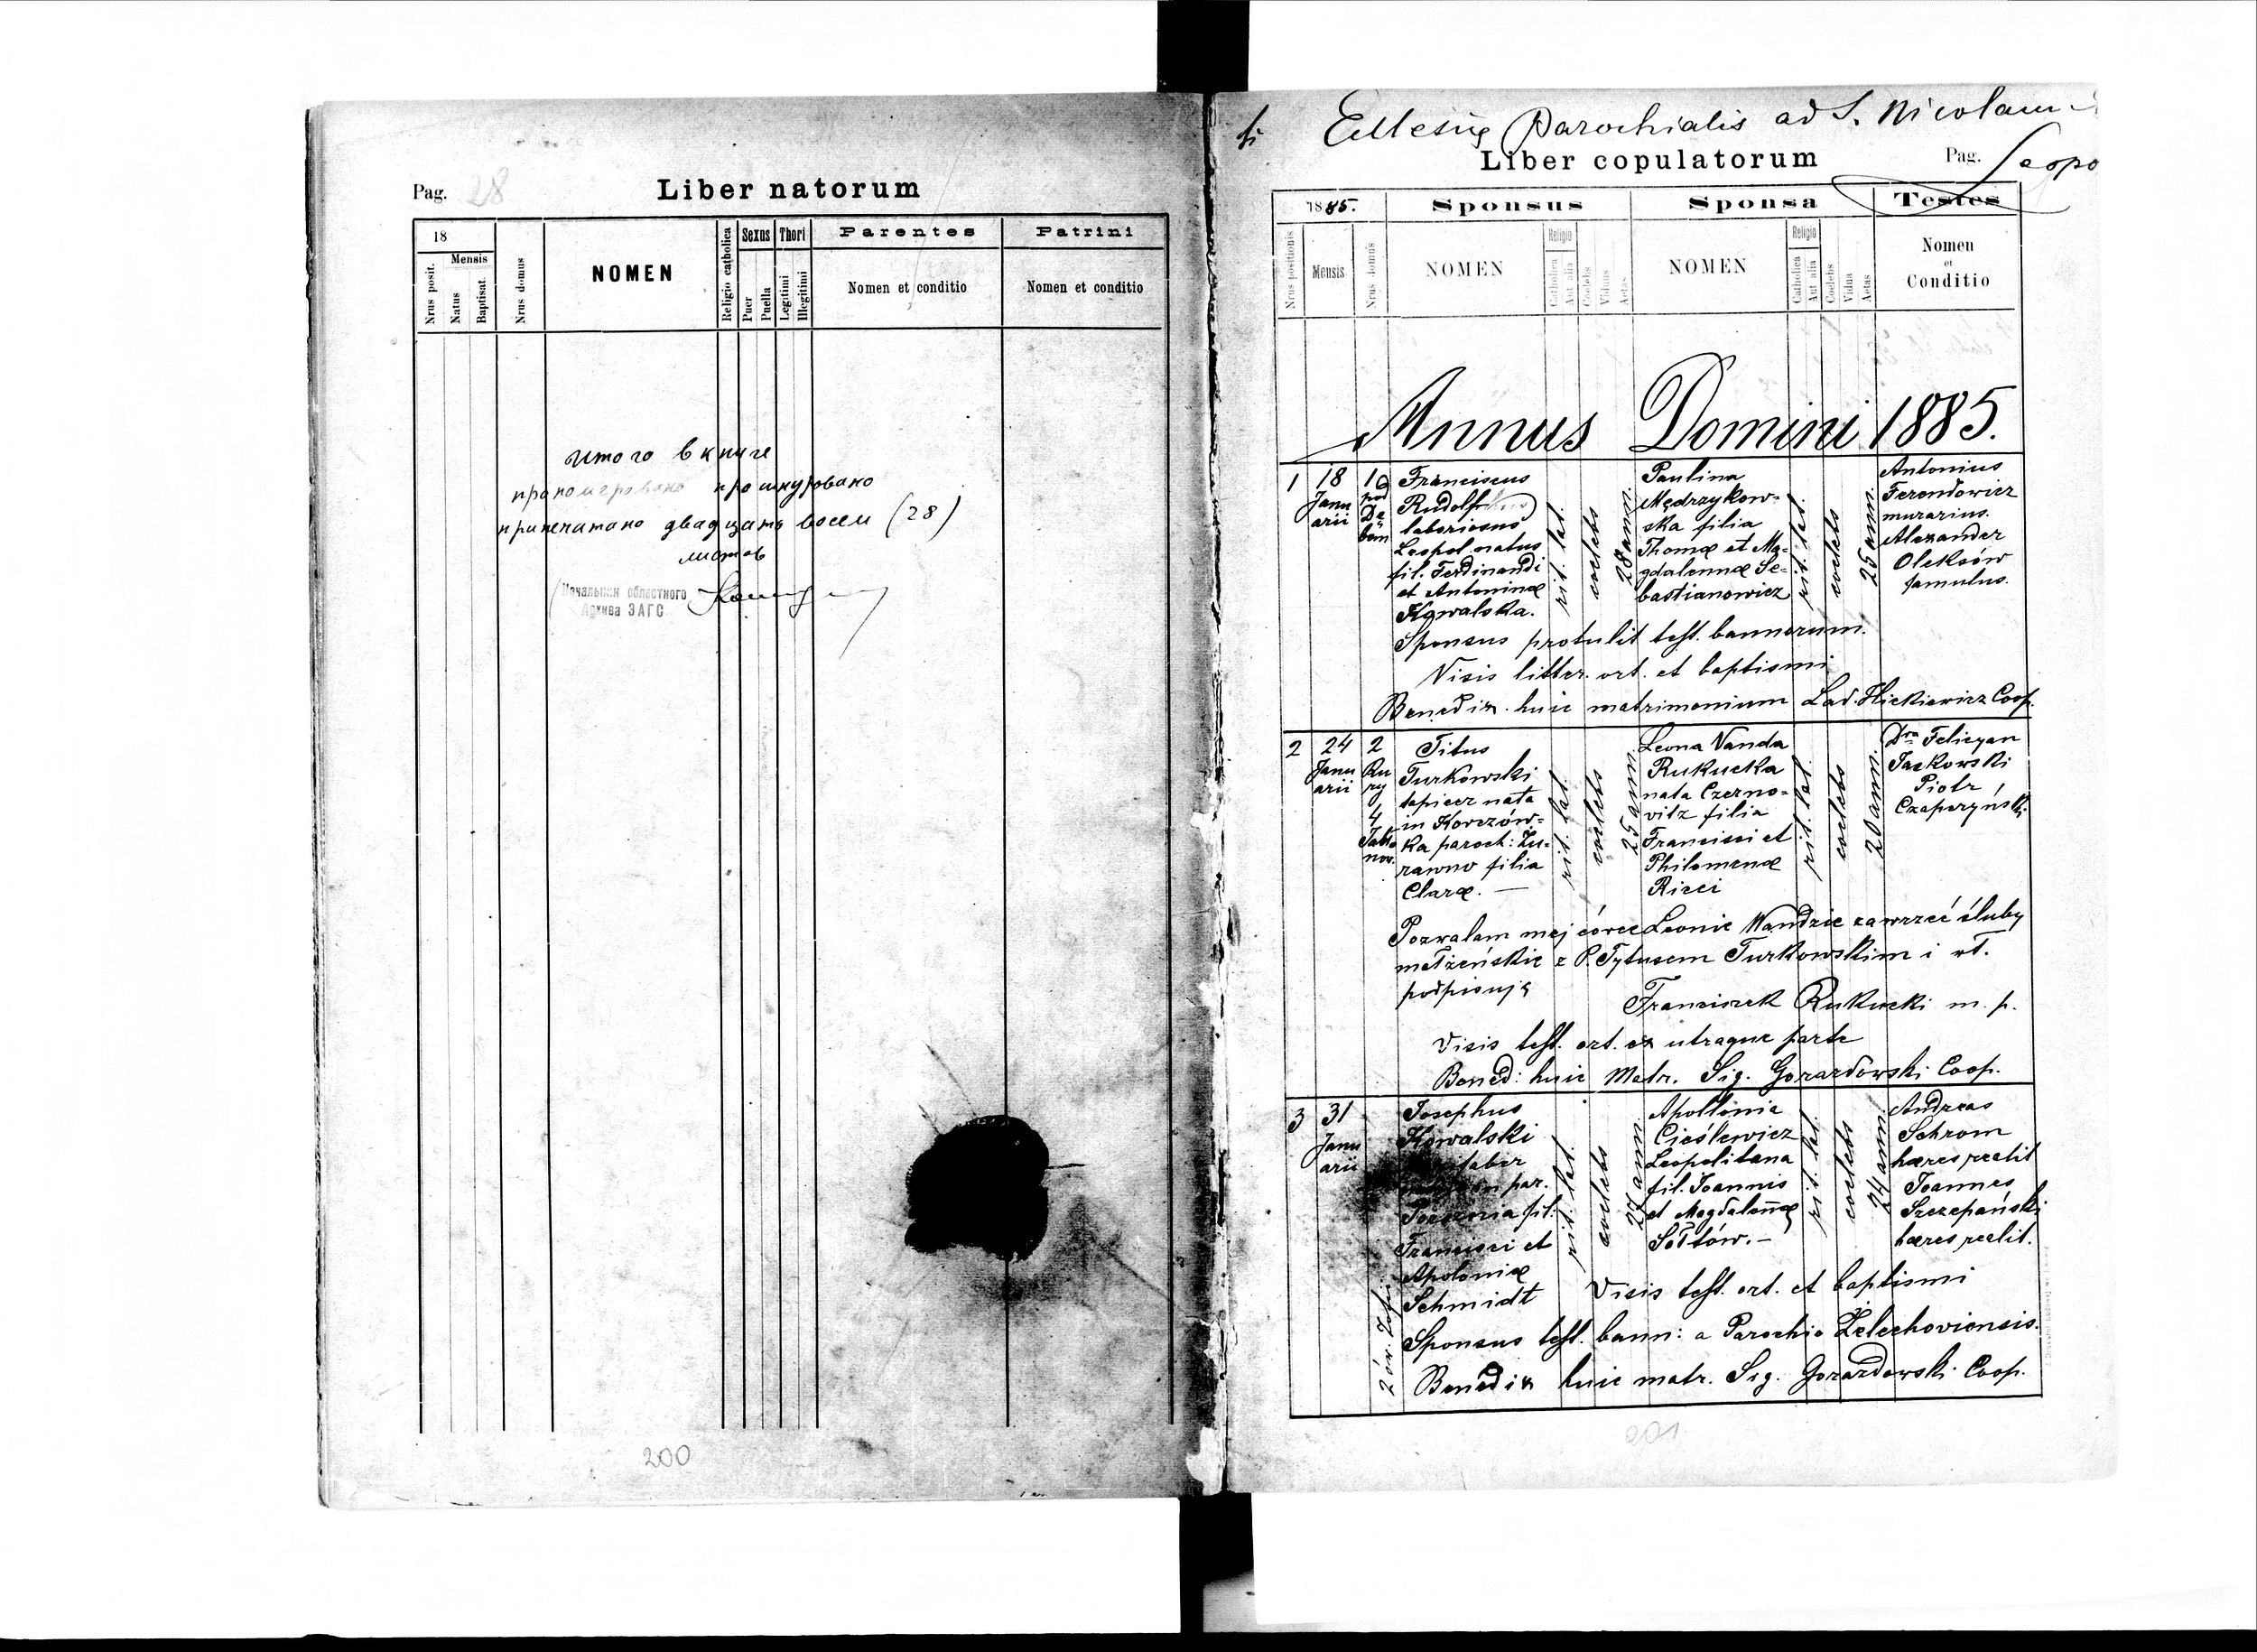 Pag. 28
Liber natorum
18
Mensis
Nrus posit.
Natus
Baptisat.
Nrus domus
NOMEN
Religio catholica
Sexus
Puer
Puella
Thori
Legitimi
Illegitimi
Parentes
Nomen et conditio
Patrini
Nomen et conditio
итого в книге
прономеровано прошнуровано
припечатано двадцать восем (28)
листов
Начальник областного
Архива ЗАГС
200
Ecclesię Parochialis ad S. Nicolaum
Leopo
Liber copulatorum
Pag.
1885.
Sponsus
Sponsa
Testes
Nrus positionis
Mensis
Nrus domus
NOMEN
Religio
Catholica
Aut alia
Coelebs
Viduus
Aetas
NOMEN
Religio
Catholica
Aut alia
Coelebs
Vidua
Aetas
Nomen
et
Conditio
Annus Domini 1885.
1
18
Janu
arii
10
pod
De
bem
Franciscus
Rudolf
laboriosus
Leopol. natus
fil. Ferdinandi
et Antoninæ
Kowalska.
rit. lat.
coelebs
28 ann.
Paulina
Mędrzykow-
ska filia
Thomæ et Ma=
gdalennæ Se=
bastianowicz
rit. lat.
coelebs
25 ann.
Antonius
Ferendowicz
murarius.
Alexander
Oleksów
famulus.
Sponsus protulit test. bannorum.
Visis litter. ort. et baptismi
Benedix. huic matrimonium Lad. Hickiewicz Coop.
2
24
Janu
arii
2
Ru
ry
4
Jabło
now.
Titus
Turkowski
tapicer nata
in Korczów=
ka paroch: Żu=
rawno filia
Claræ. —
rit. lat.
coelebs
25 ann.
Leona Vanda
Rukucka
nata Czerno=
vitz filia
Francisci et
Philomenæ
Ricci
rit. lat.
coelebs
20 ann.
Dra Felicyan
Jackowski
Piotr
Czaperzyński
Pozwalam mej córce Leonie Wandzie zawrzeć śluby
małżeńskie z P. Tytusem Turkowskim i wł.
podpisuję
Franciszek Rukucki m. p.
Visis test. ort. ex utraque parte
Bened: huic Matr. Sig. Gorazdowski Coop.
3
31
Janu
arii
2 ór. Zofii
Josephus
Kowalski
faber
par.
fil.
Francisci et
Apoloniæ
Schmidt
rit. lat.
coelebs
27 ann.
Apollonia
Cieślewicz
Leopolitana
fil. Joannis
et Magdalenæ
Sołtów. —
rit. lat.
coelebs
24 ann.
Andreas
Schrom
hæres realit
Joannes
Szczepański
hæres realit.
Visis test. ort. et baptismi
Sponsus test. bann: a Parochio Żelechoviensis.
Benedix huic matr. Sig. Gorazdowski Coop.
201